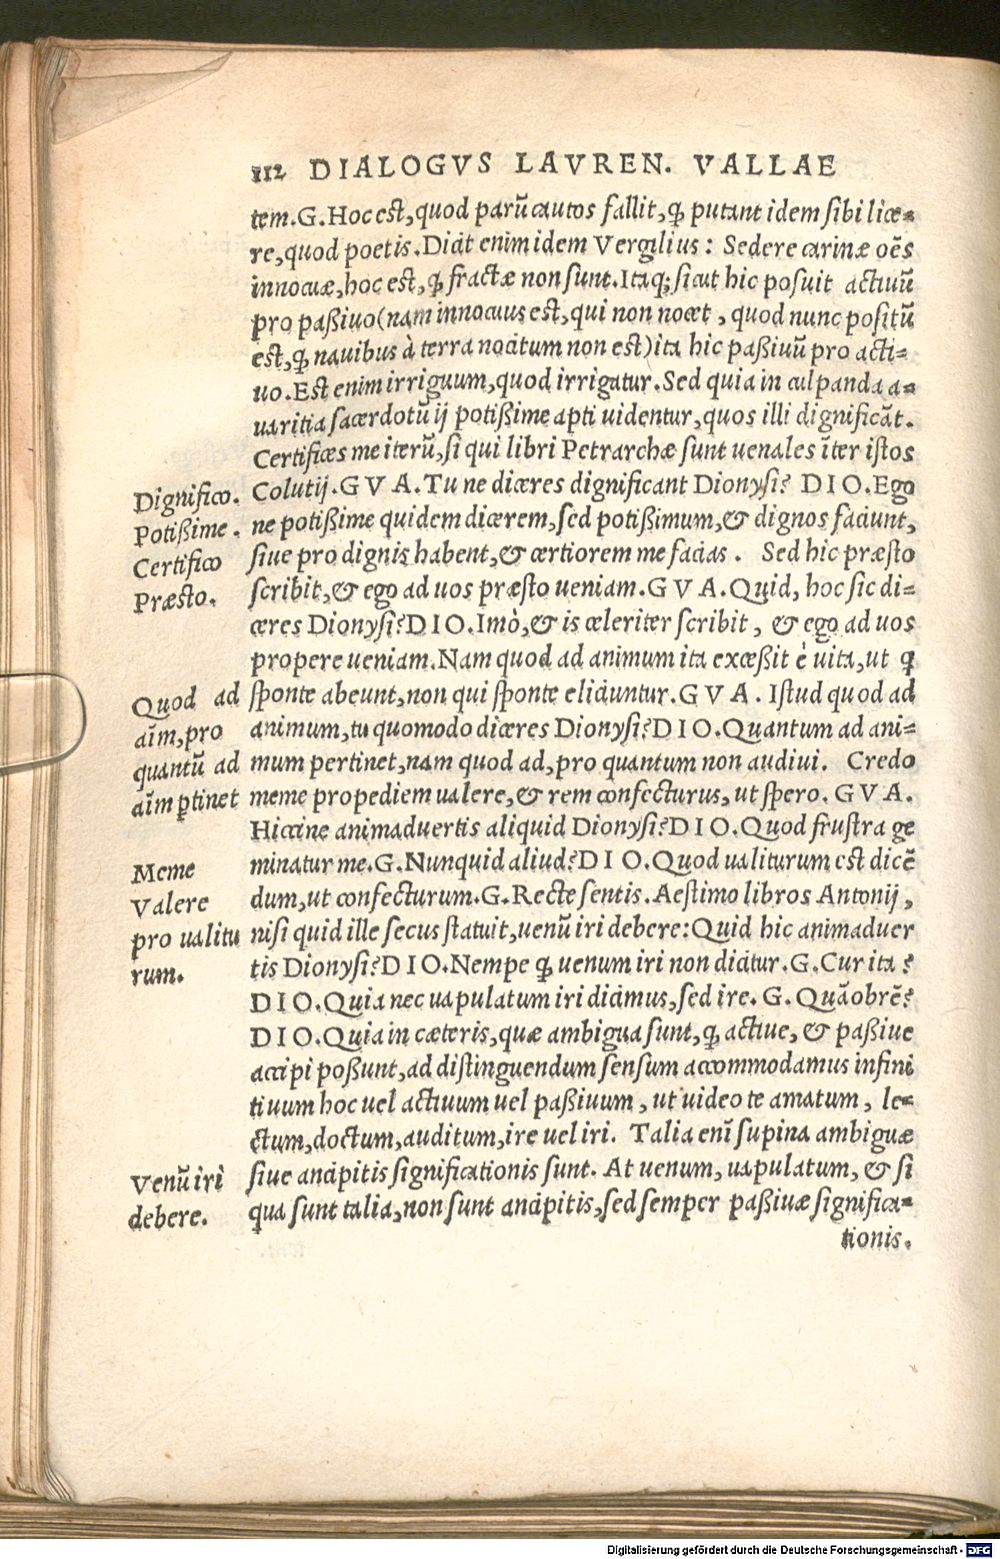 112 DIALOGVS LAVREN. VALLAE
tem.G.Hoc est,quod parũ cautos fallit,ꝙ putant idem sibi lice-
re,quod poetis.Dicit enim idem Vergilius: Sedere carinæ oẽs
innocuæ,hoc est,ꝙ fractæ non sunt.Itaq; sicut hic posuit actiuũ
pro paßiuo(nam innocuus est,qui non nocet, quod nunc positũ
est,ꝙ nauibus à terra nocitum non est)ita hic paßiuũ pro acti-
uo.Est enim irriguum,quod irrigatur.Sed quia in culpanda a-
uaritia sacerdotũ ij potißime apti uidentur,quos illi dignificãt.
Certifices me iterũ,si qui libri Petrarchæ sunt uenales ĩter istos
Colutij.G V A.Tu ne diceres dignificant Dionysi? D I O.Ego
ne potißime quidem dicerem,sed potißimum,& dignos faciunt,
siue pro dignis habent,& certiorem me facias. Sed hic præsto
scribit,& ego ad uos præsto ueniam.G V A.Quid, hoc sic di-
ceres Dionysi?D I O.Imò,& is celeriter scribit, & ego ad uos
propere ueniam.Nam quod ad animum ita exceßit è uita,ut ꝗ
sponte abeunt,non qui sponte eliciuntur.G V A. Istud quod ad
animum,tu quomodo diceres Dionysi?D I O.Quantum ad ani-
mum pertinet,nam quod ad,pro quantum non audiui. Credo
meme propediem ualere,& rem confecturus,ut spero. G V A.
Hiccine animaduertis aliquid Dionysi?D I O.Quod frustra ge
minatur me.G.Nunquid aliud?D I O.Quod ualiturum est dicẽ
dum,ut confecturum.G.Recte sentis.Aestimo libros Antonij,
nisi quid ille secus statuit,uenũ iri debere:Quid hic animaduer
tis Dionysi?D I O.Nempe ꝙ uenum iri non dicitur.G.Cur ita?
D I O.Quia nec uapulatum iri dicimus,sed ire. G. Quãobrẽ?
D I O.Quia in cæteris,quæ ambigua sunt,ꝙ actiue, & paßiue
accipi poßunt,ad distinguendum sensum accommodamus infini
tiuum hoc uel actiuum uel paßiuum, ut uideo te amatum, le-
ctum,doctum,auditum,ire uel iri. Talia enĩ supina ambiguæ
siue ancipitis significationis sunt. At uenum, uapulatum, & si
qua sunt talia,non sunt ancipitis,sed semper paßiuæ significa-
tionis.
Dignifico.
Potißime.
Certifico
Præsto.
Quod ad
aĩm,pro
quantũ ad
aĩm ptinet
Meme
Valere
pro ualitu
rum.
Venũ iri
debere.
Digitalisierung gefördert durch die Deutsche Forschungsgemeinschaft - DFG